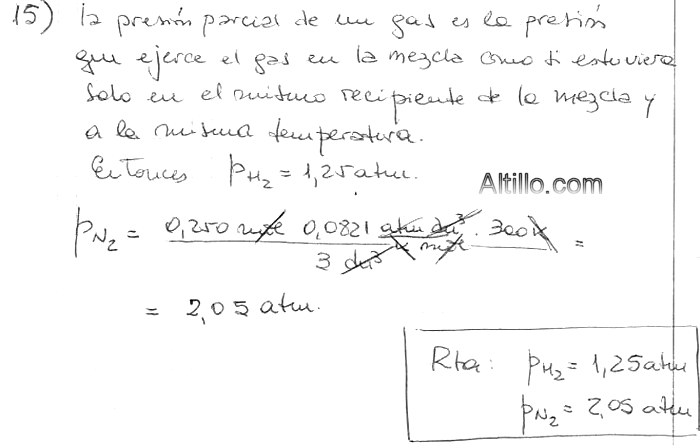 15) La presión parcial de un gas es la presión
que ejerce el gas en la mezcla como si estuviera
solo en el mismo recipiente de la mezcla y
a la misma temperatura.
Entonces pH₂ = 1,25 atm.
Altillo.com
pN₂ = 0,250 mol 0,0821 atm dm³ . 300K =
3 dm³ K mol
= 2,05 atm.
Rta: pH₂ = 1,25 atm
pN₂ = 2,05 atm